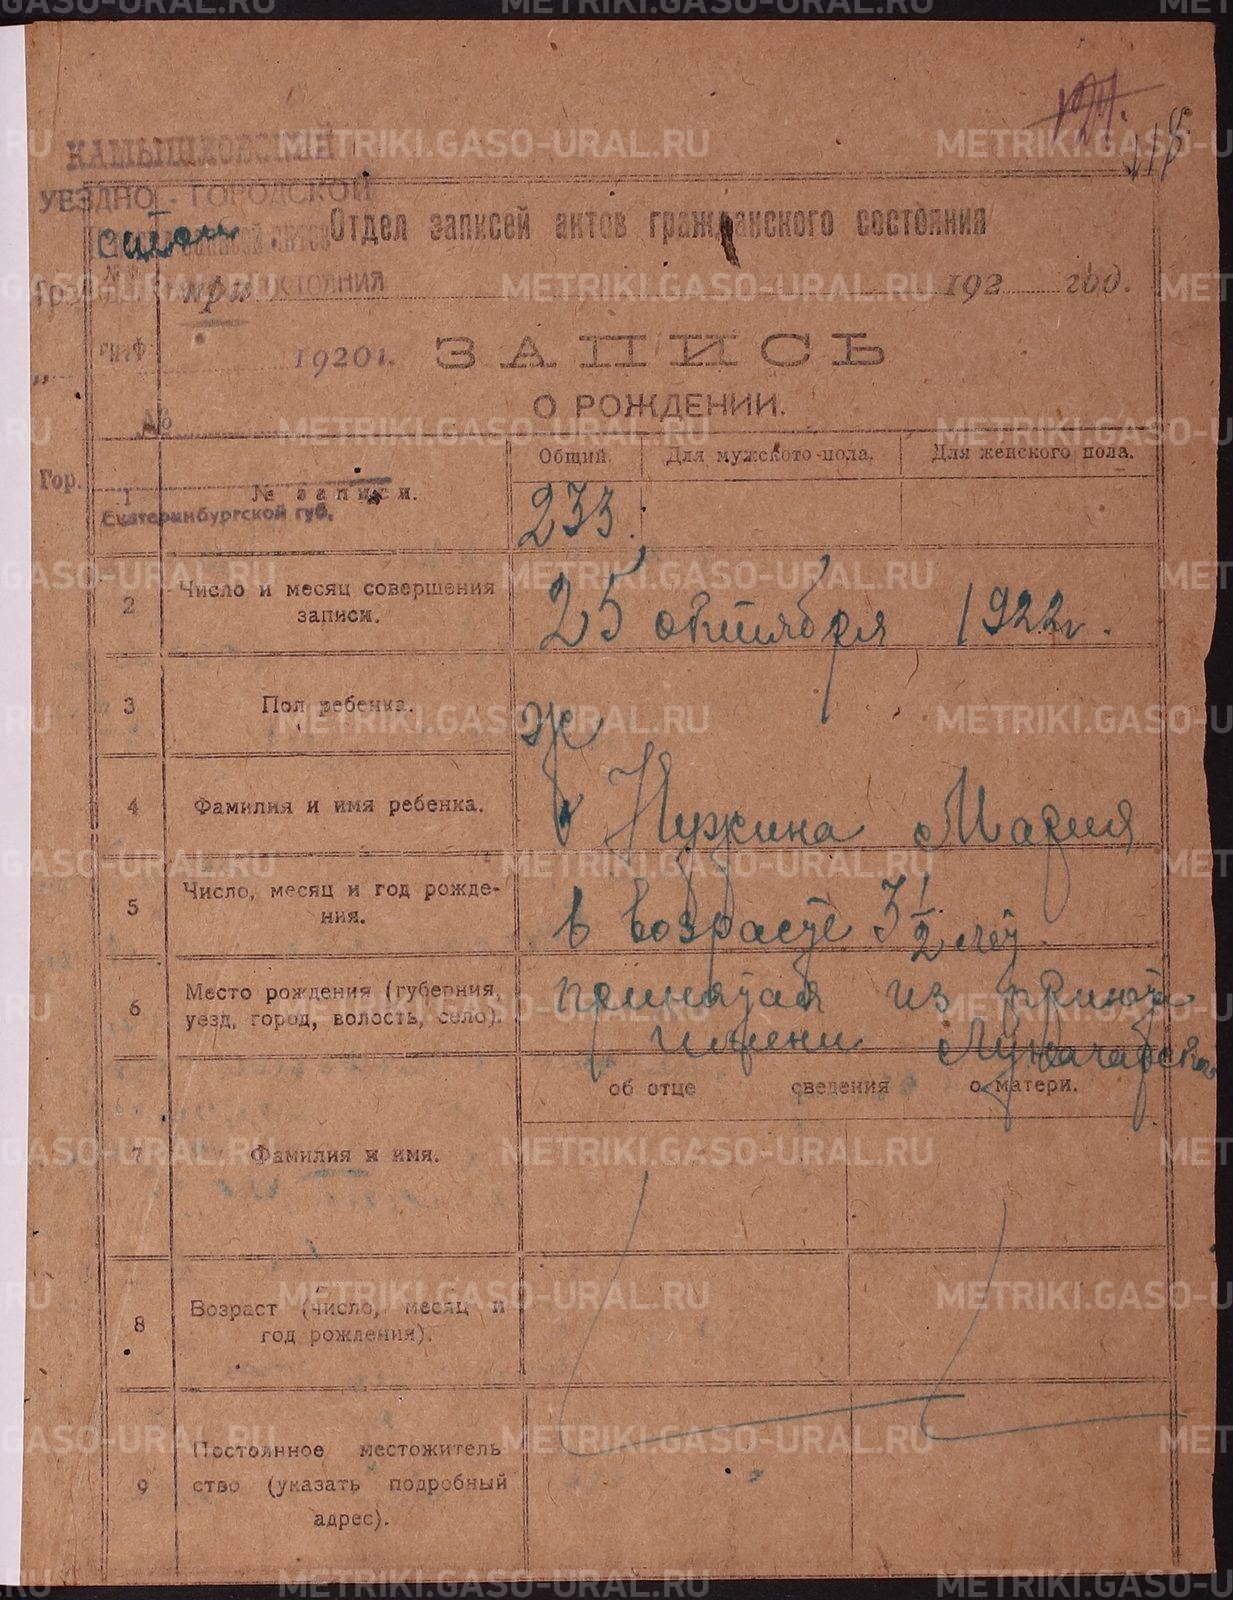 КАМЫШЛОВСКИЙ
УЕЗДНО-ГОРОДСКОЙ
Отдел записей актов гражданского состояния
192 год.
1920 г.
ЗАПИСЬ
О РОЖДЕНИИ.
№
Гор.
Общий. Для мужского пола. Для женского пола.
1 № записи. 233.
Екатеринбургской губ.
2 Число и месяц совершения записи. 25 октября 1922 г.
3 Пол ребенка. ж
4 Фамилия и имя ребенка. Нужина Мария
5 Число, месяц и год рождения. в возрасте 3 1/2 лет.
6 Место рождения (губерния, уезд, город, волость, село). принятая из приюта
имени Луначарского
об отце сведения о матери.
7 Фамилия и имя.
8 Возраст (число, месяц и год рождения).
9 Постоянное местожительство (указать подробный адрес).
METRIKI.GASO-URAL.RU